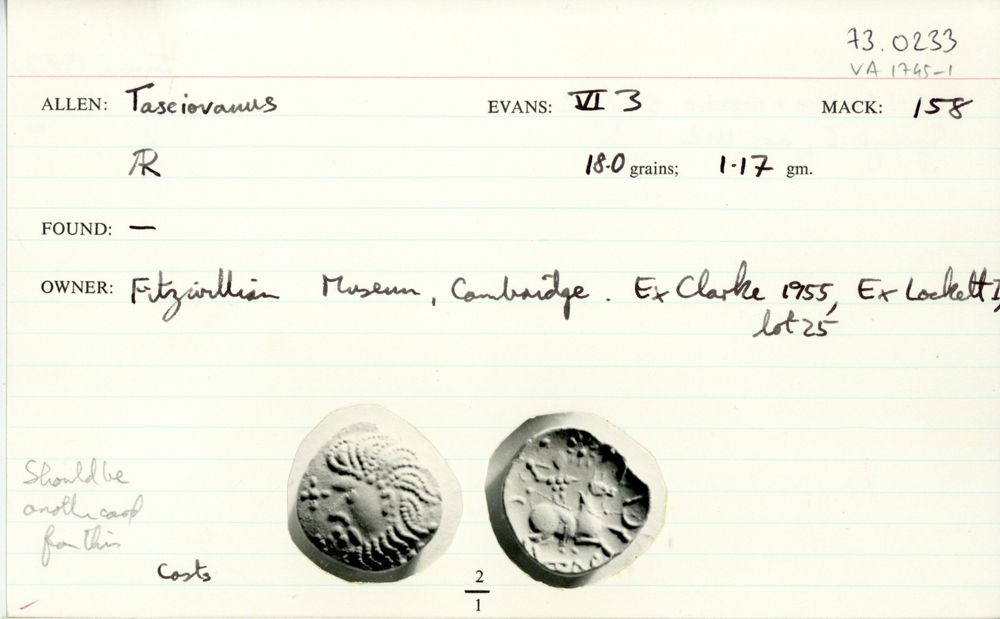 73.0233
VA 1745-1
ALLEN: Tasciovanus EVANS: VI 3 MACK: 158
AR 18.0 grains; 1.17 gm.
FOUND: —
OWNER: Fitzwilliam Museum, Cambridge. Ex Clarke 1955, Ex Lockett I,
lot 25
Should be
another card
for this
Casts
2
1